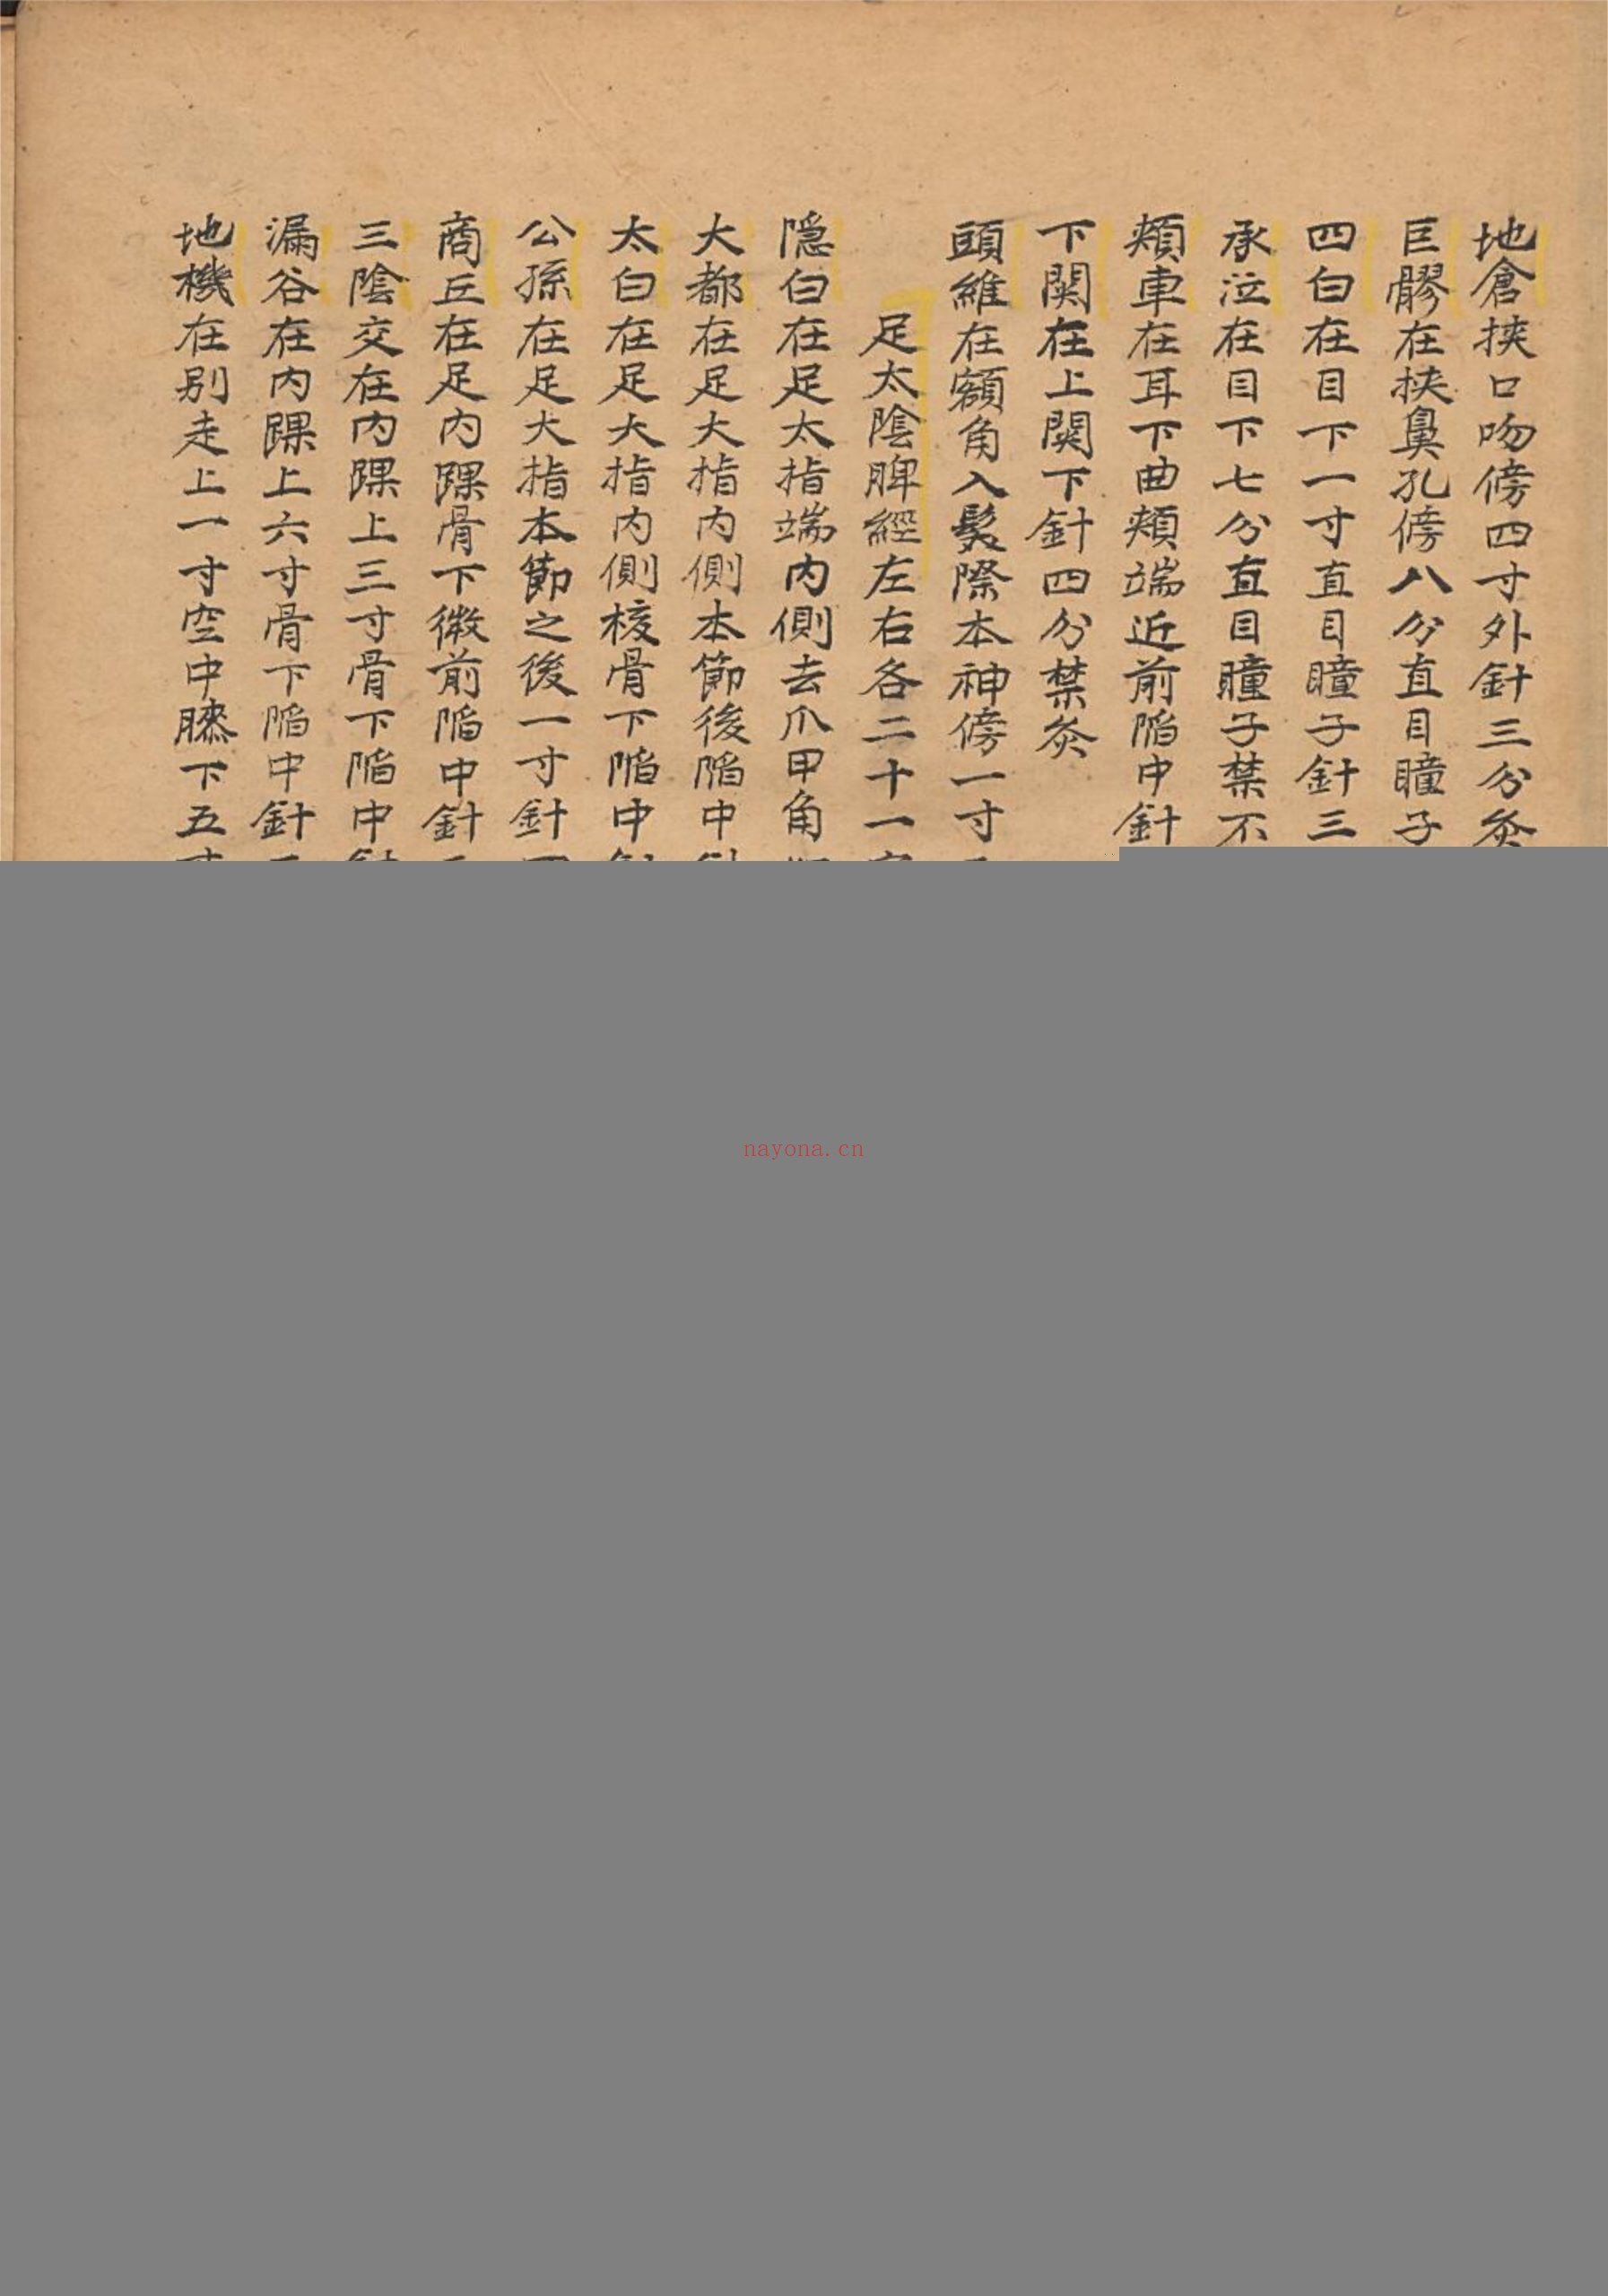 地倉挾口吻傍四寸外針三分灸
巨髎在挾鼻孔傍八分直目瞳子
四白在目下一寸直目瞳子針三
承泣在目下七分直目瞳子禁不
頰車在耳下曲頰端近前陷中針
下関在上関下針四分禁灸
頭維在額角入髮際本神傍一寸
足太陰脾經左右各二十一
隠白在足太指端內側去爪甲角
大都在足大指內側本節後陷中
太白在足大指內側核骨下陷中
公孫在足大指本節之後一寸針
商丘在足內踝骨下微前陷中針
三陰交在內踝上三寸骨下陷中
漏谷在內踝上六寸骨下陷中針
地機在别走上一寸空中膝下五
nayona.cn